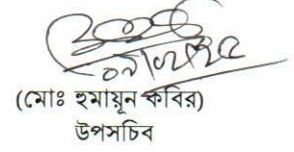 (মোঃ হুমায়ুন কবির)
উপসচিব